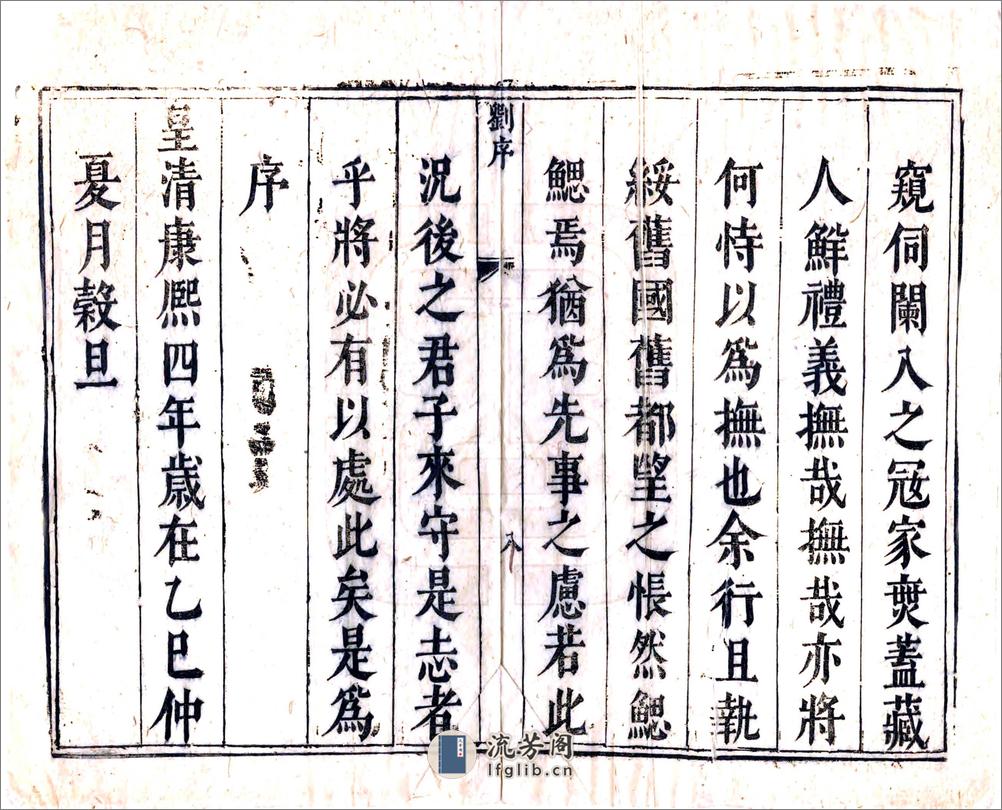 窺伺闌入之冠家焚蓋藏
人鮮禮義撫哉撫哉亦將
何恃以為撫也余行且執
綏舊國舊都望之悵然鰓
鰓焉猶為先事之慮若此
劉序
八
況後之君子來守是志者
乎將必有以處此矣是為
序
皇清康熙四年歲在乙巳仲
夏月穀旦
流芳阁
lfglib.cn